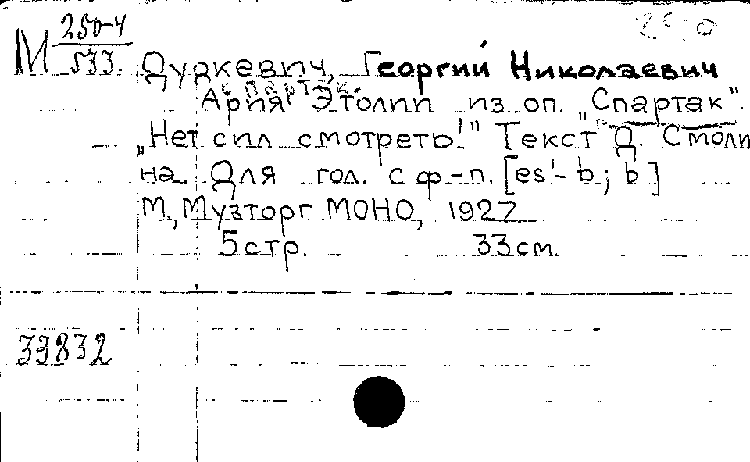 М 250-4
533.
Дудкевич, Георгий Николаевич
Ария Этолии из оп. „Спартак".
„Нет сил смотреть!" Текст Д. Смоли
на Для гол. с ф-п. [es'-b; b]
М., Музторг МОНО, 1927
5 стр. 33 см.
33832